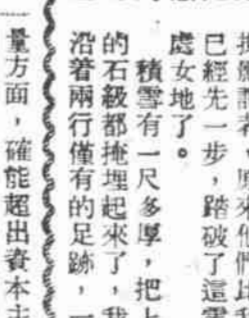 已經先一步，踏破了這雪
處女地了。
積雪有一尺多厚，把上
的石級都掩埋起來了，我
沿着兩行僅有的足跡，一
量方面，確能超出資本主